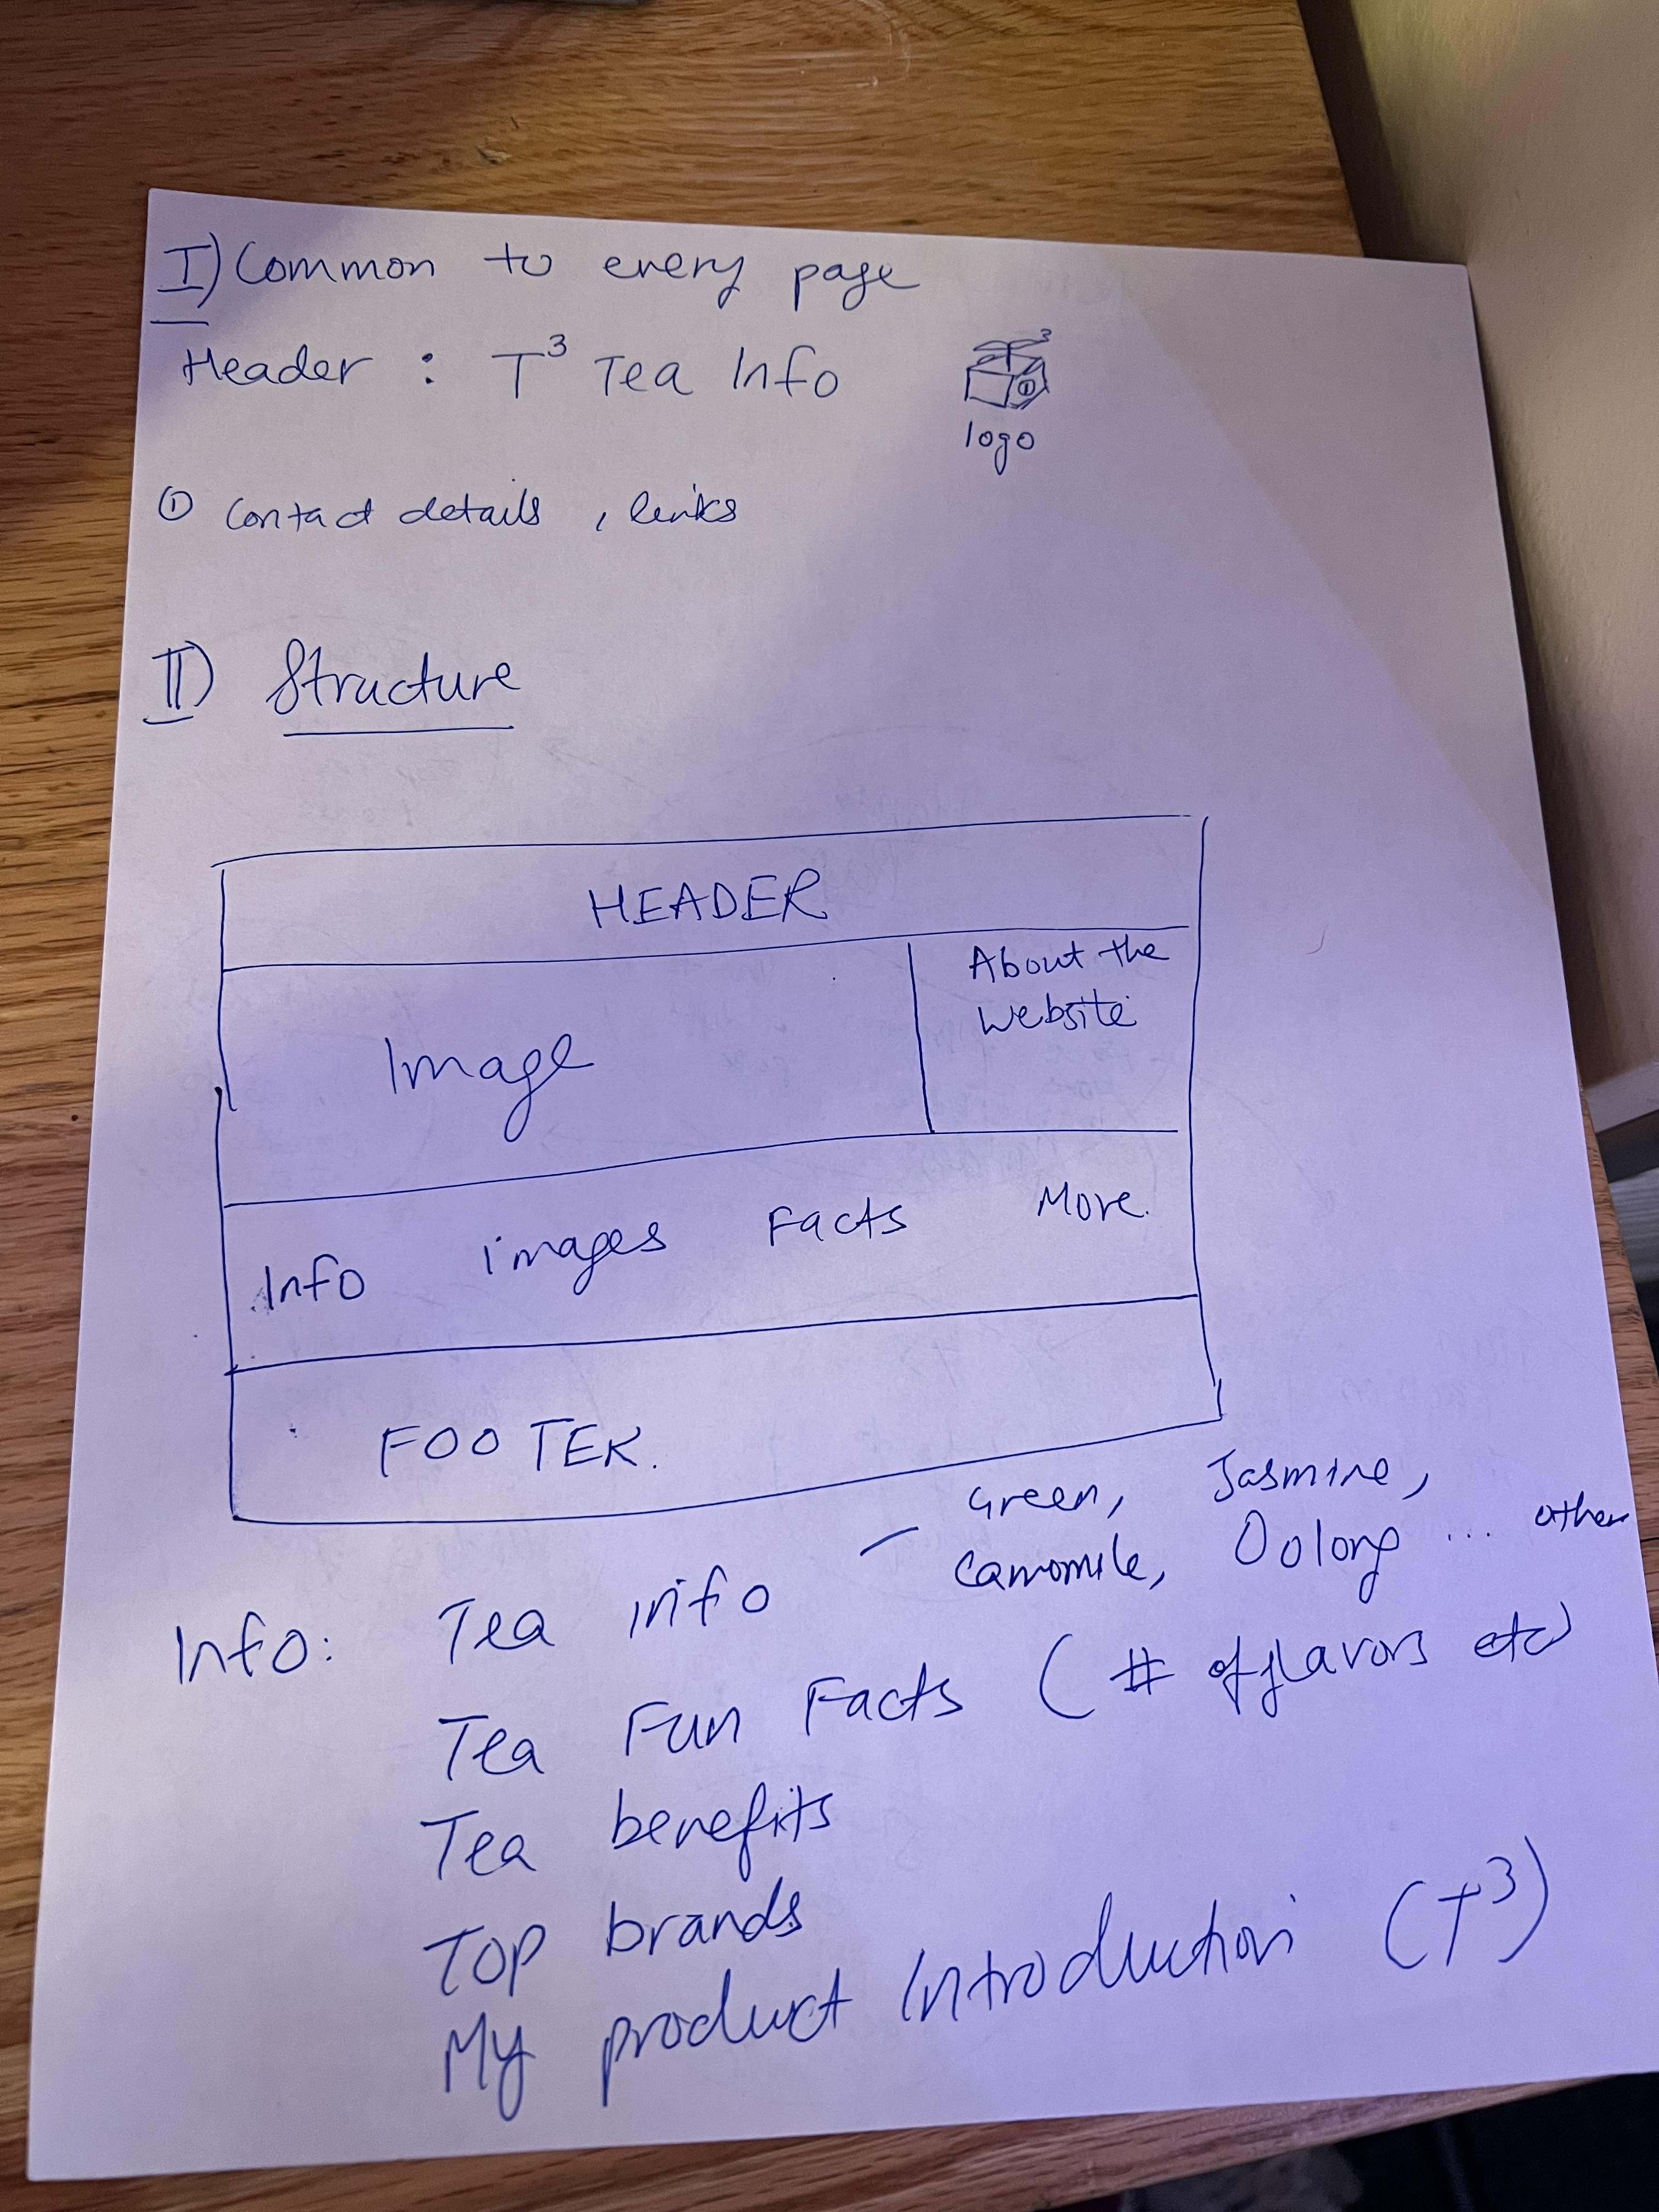 I) Common to every page
Header : T³ Tea Info
logo
① Contact details , links
II) Structure
HEADER
Image
About the
website
Info images Facts More.
FOOTER.
Info: Tea info – Green, Jasmine,
Camomile, Oolong ... other
Tea Fun Facts ( # of flavors etc)
Tea benefits
Top brands
My product Introduction (T³)